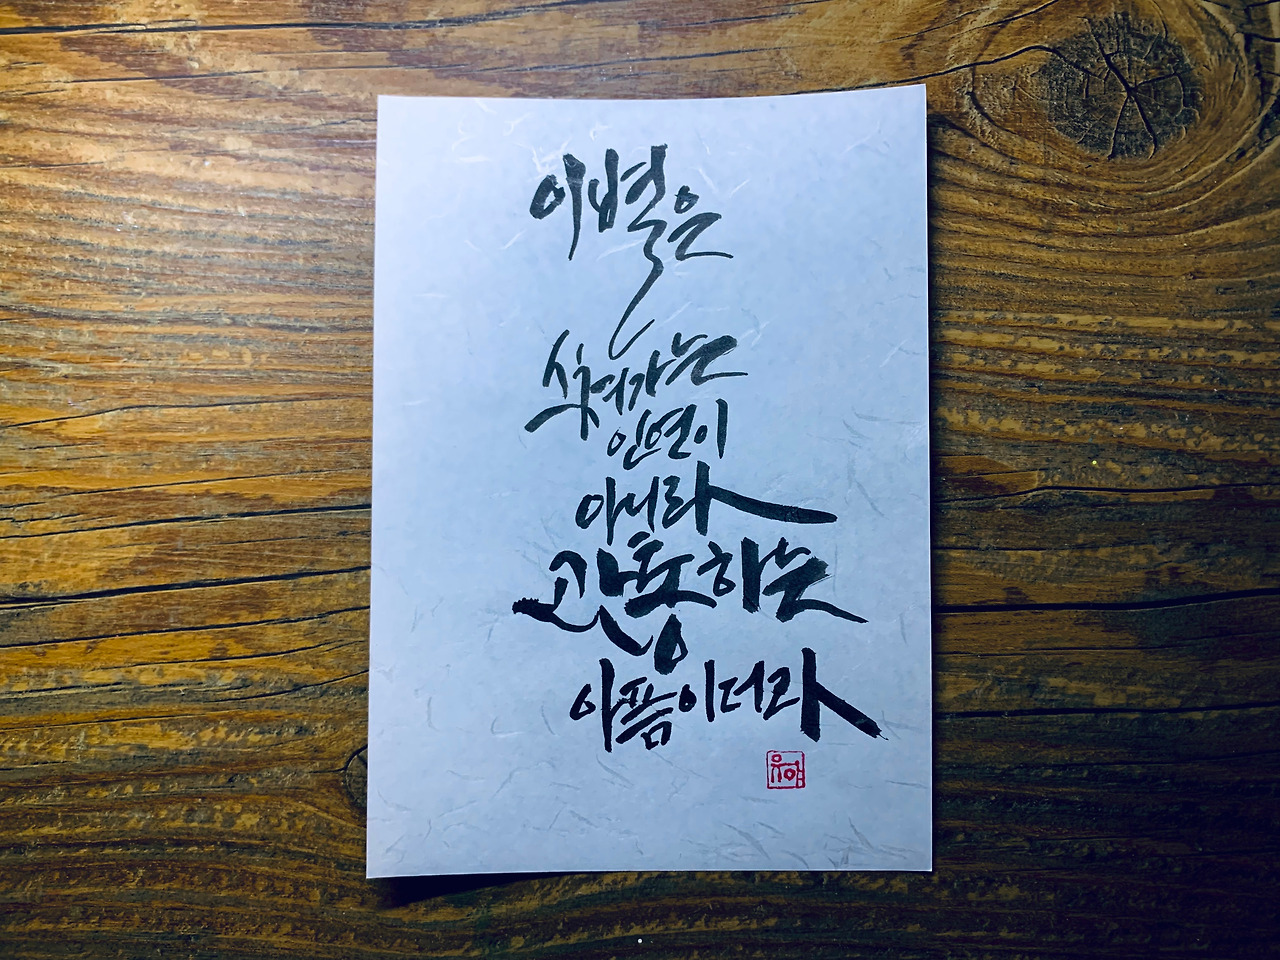 이별은
스쳐가는
인연이
아니라
관통하는
아픔이더라